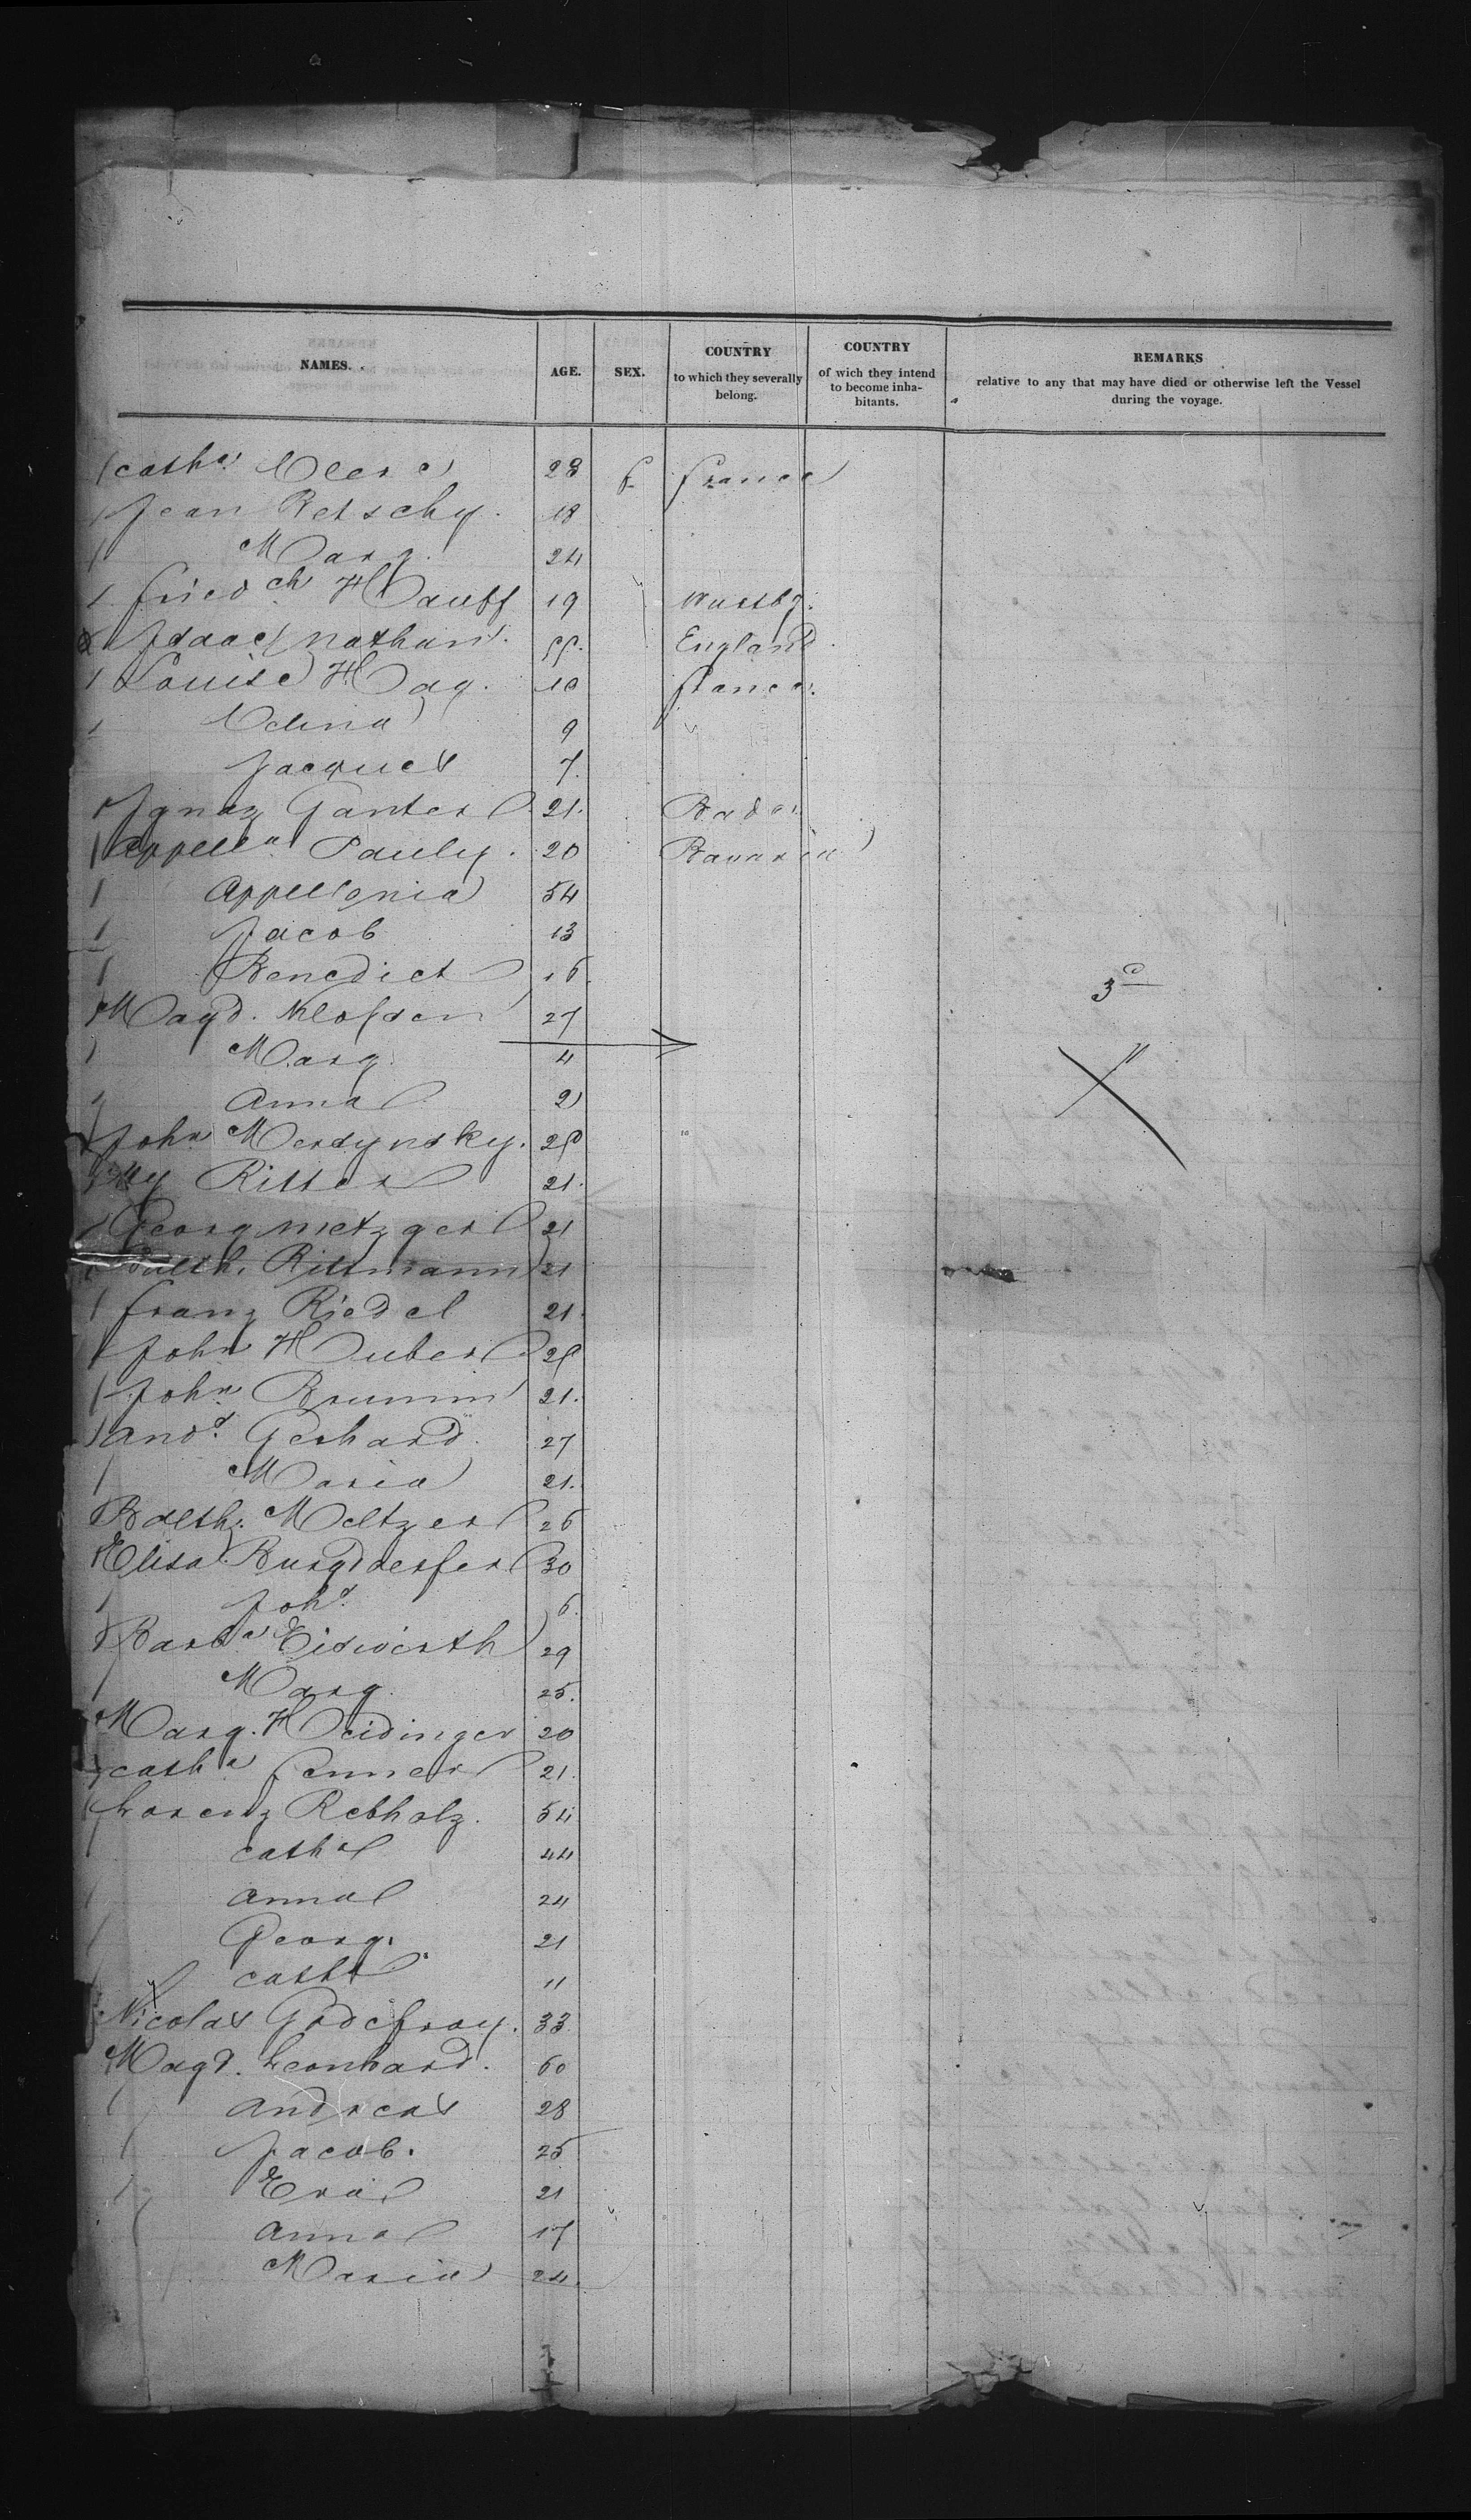 NAMES. AGE. SEX. COUNTRY to which they severally belong. COUNTRY of wich they intend to become inhabitants. REMARKS relative to any that may have died or otherwise left the Vessel during the voyage.
Cath.a Clerc 28 f France
Jean Retschy. 18
Marg. 24
Fried.ch Hauff 19 Wurtbg.
Isaac Nathan. England
Louise Hag. 10 France.
9
Jacques 7.
Ignaz Ganter 21. Baden
Appell.a Pauly. 20 Bavaria
Appellonia 54
Jacob 13
Benedict 16. 3d
Magd. Klossen 27
Marg. 4
Anna 2
John Merdynsky.
Ritter 21.
Georg Metzger 21
Balth. Rittmann 21
Franz Riedel 21.
John Huber
John Brumm 21.
And.s Gerhard. 27
Maria 21.
Balth. Meltzer 26
Elisa Burgdoerfer 30
Joh.s 6.
Barb.a Eidwirth 29
Marg. 25.
Marg. Heidinger 20
Cath.a Fenner 21.
Lorenz Rebholz. 54
Cath.a 44
Anna 24
Georg. 21
Cath.a 11
Nicolas Godefroy. 33.
Magd. Leonhard. 60
Andreas 28
Jacob. 25
Eva 21
Anna 17
Maria 24.